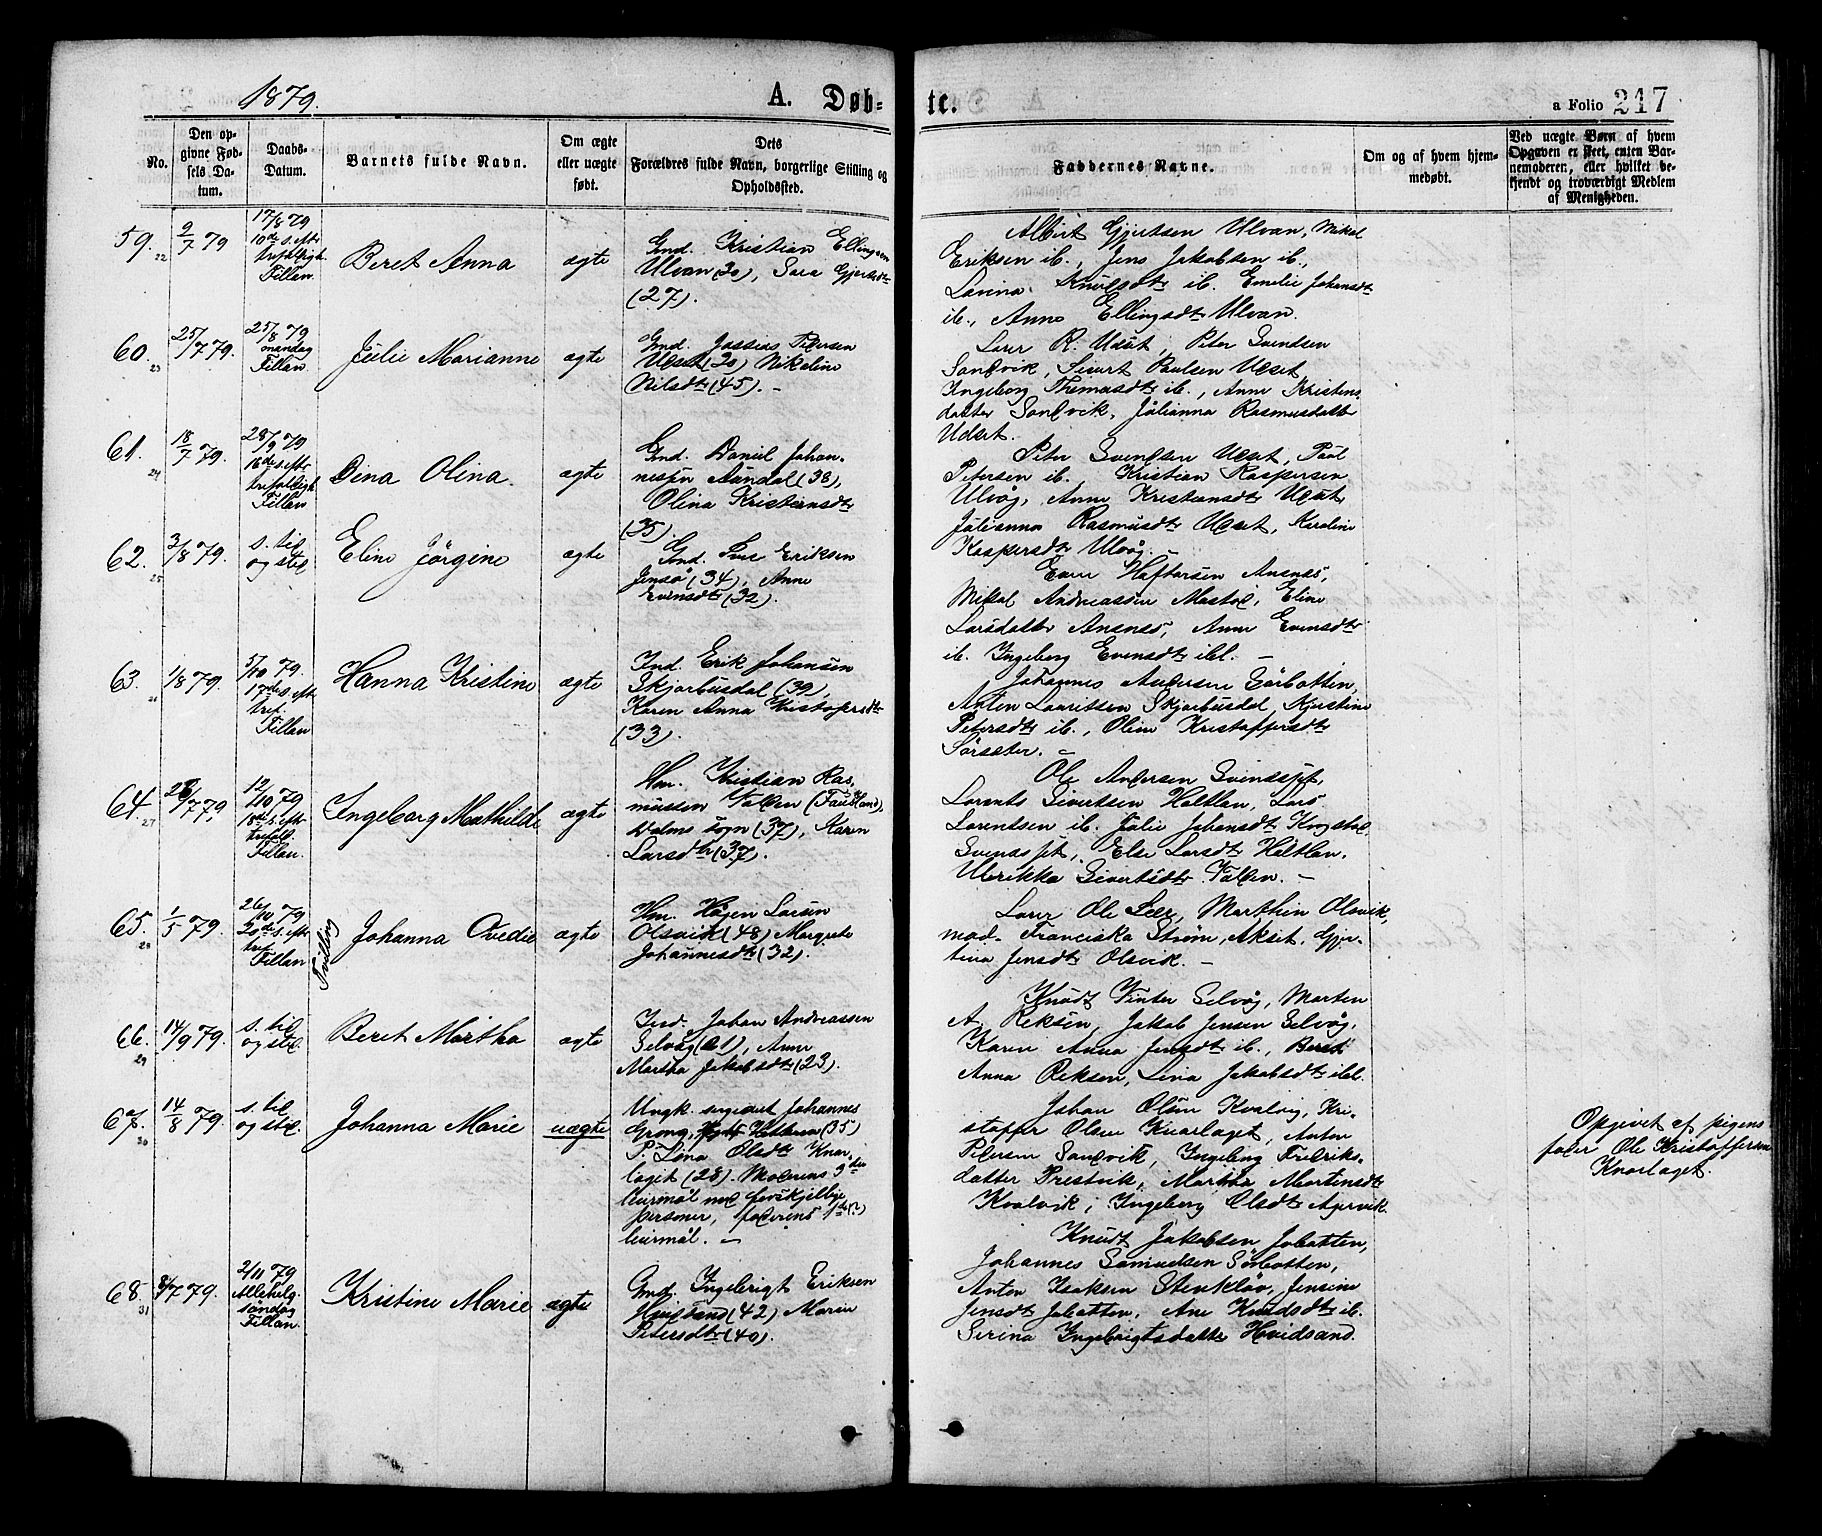 1879.
A. Døb-
te.
a Folio 217
No.
Den op-
givne Fød-
sels Da-
tum.
Daabs-
Datum.
Barnets fulde Navn.
Om ægte
eller uægte
født.
Dets
Forældres fulde Navn, borgerlige Stilling og
Opholdssted.
Faddernes Navne.
Om og af hvem hjem-
medøbt.
Ved uægte Børn af hvem
Opgaven er skeet, enten Bar-
nemoderen, eller hvilket be-
kjendt og troværdigt Medlem
af Menigheden.
59.
22
2/7 79
17/8 79
10de s. eft.
trefoldigh.
Fillan.
Beret Anna
ægte
Gmd. Kristian Ellingsen
Ulvan (30), Sara Gjertsdtr
(27).
Albert Gjertsen Ulvan, Mikal
Eriksen ib., Jens Jakobsen ib.,
Lovina Knudsdtr ib. Emelie Johansdt
ib., Anne Ellingsdtr Ulvan.
60.
23
25/7 79.
25/8 79
mandag
Fillan.
Julie Marianne
ægte
Gmd. Jossias Pedersen
Udset (30) Nikoline
Nilsdtr (45). -
Lærer R. Udset, Peter Svendsen
Sandvik, Sivert Paulsen Udset
Ingeborg Thomasdtr ib., Anne Kristens
datter Sandvik, Julianna Rasmusdatter
Udset.
61.
24
18/7 79.
28/9 79
16de s. eft.
trefoldigh.
Fillan
Dina Olina.
ægte
Gmd. Daniel Johan-
nesen Aundal (38),
Olina Kristiansdtr
(35).
Peter Svendsen Udset, Paul
Petersen ib. Kristian Kaspersen
Ulvøg, Anne Kristensdtr Udset
Julianna Rasmusdtr Udset, Karoline
Kaspersdtr Ulvøg. -
62.
25
3/8 79.
s. til
og sted
Eline Jörgine
ægte
Gmd. Jens Eriksen
Jensø (34), Anne
Evensdtr (32).
Even Haftorsen Ansnes,
Mikal Andreassen Mastad, Eline
Larsdatter Ansnes, Anne Evensdtr
ib. Ingeborg Evensdtr ibd. -
63.
1/8 79.
5/10 79.
17de s. eft.
tref.
Fillan
Hanna Kristine
ægte
Ind. Erik Johansen
Skjærbusdal (39),
Karen Anna Kristofersdtr
(33).
Johannes Andersen Sörbotten,
Anton Lauritssen Skjærbusdal, Kjerstine
Petersdtr ib., Oline Kristoffersdtr
Sörsæter. -
64.
27
26/7 79
12/10 79
18de s. eft.
trefold.
Fillan.
Ingeborg Mathilde
ægte
Hm. Kristian Ras-
mussen Valen (Fausland),
Dolms sogn (37), Karen
Larsdtr (37).
Ole Andersen Svendssjet,
Lorents Sivertsen Hatlan, Lars
Lorentsen ib. Julie Johansdtr Krogstad
Svendssjet, Else Larsdtr Hatlan,
Ulrikka Sivertsdtr Valen. -
65.
28
1/5 79.
26/10 79
20de s. eft.
tref.
Fillan
Tvilling
Johanna Ovedie
ægte
Hm. Hågen Larsen
Olsvik (48) Margrete
Johannesdtr (32).
Lærer Ole Leer, Marthin Olsvik,
mad. Franciska Strøm, Akset, Gjer-
tina Jensdtr Olsvik. -
66.
29
14/9 79.
s. til
og sted.
Beret Martha
ægte
Ind. Johan Andreassen
Selvåg (21), Anne
Martha Jakobsdtr (23).
Knudt Vinter Selvåg, Morten
A. Reksen, Jakob Jensen Selvåg,
Karen Anna Jensdtr ib., Beret
Anna Reksen, Lina Jakobsdtr ibd.
67.
30
14/8 79.
s. til
og sted.
Johanna Marie
uægte
Ungk. sergeant Johannes
Grong, (35)
P. Lina Olsdtr Knar-
laget (28). Moderens 3die
leiermål med forskjellige
personer, faderens 1ste (?)
leiermål. -
Johan Olsen Kvalvig, Kri-
stoffer Olsen Knarlaget, Anton
Petersen Sandvik, Ingeborg Fredriks-
datter Prestvik, Martha Mortensdt
Kvalvik, Ingeborg Olsdtr Agervik
Opgivet af pigens
fader Ole Kristoffersen
Knarlaget.
68.
31
8/7 79.
2/11 79
Allehelg.
søndag
Fillan.
Kristine Marie
ægte
Gmd. Ingebrigt Eriksen
Hvidsand (42) Maren
Petersdtr (40).
Knudt Jakobsen Jobotten,
Johannes Samuelsen Sörbotten,
Anton Isaksen Stenkløv, Jensine
Jensdt Jobotten, Ane Knudsdtr ib.
Serina Ingebrigtsdatter Hvidsand.